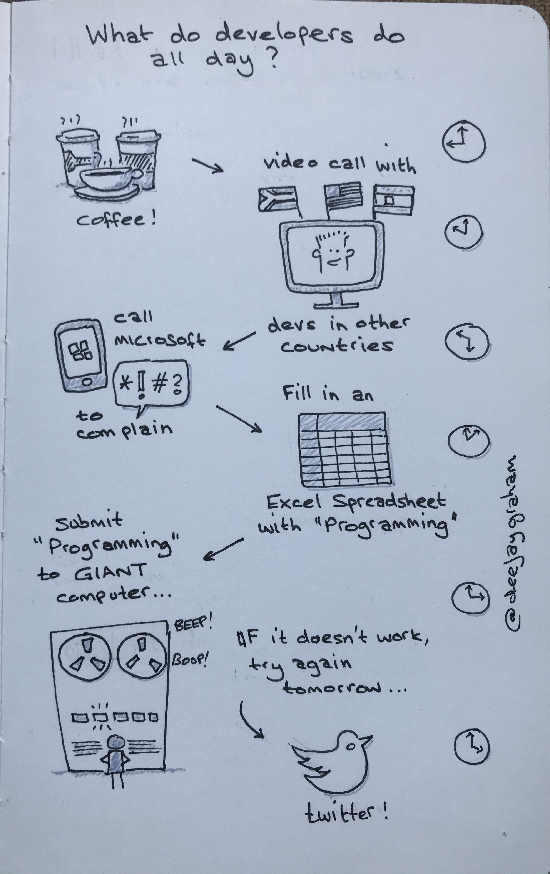 What do developers do
all day?
coffee!
video call with
devs in other
countries
call
Microsoft
*!#?
to
complain
Fill in an
Excel Spreadsheet
with "Programming"
Submit
"Programming"
to GIANT
computer...
BEEP!
BOOP!
IF it doesn't work,
try again
tomorrow...
twitter!
@deejaygraham